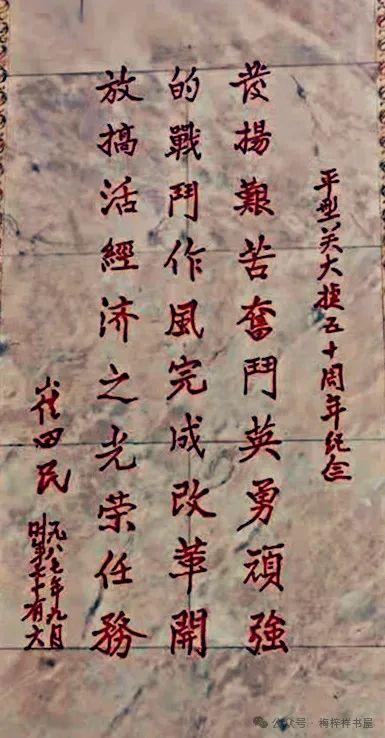 平型关大捷五十周年纪念
發揚艱苦奮鬥英勇頑強
的戰鬥作風完成改革開
放搞活經济之光荣任務
崔四民
一九八七年九月
时年七十有六
公众号·梅梓祥书屋